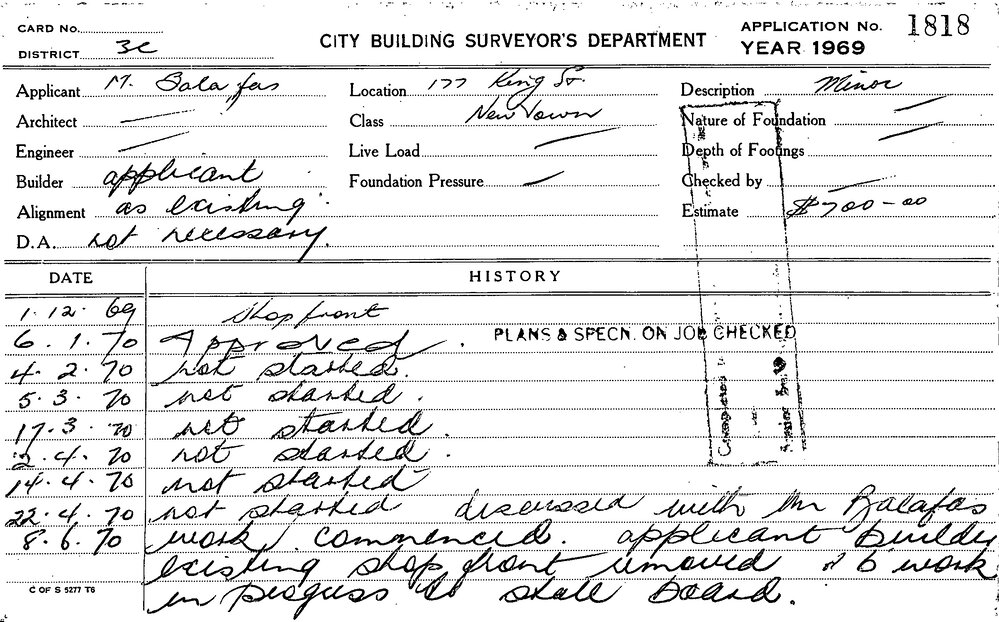 CARD No.
DISTRICT 3C
CITY BUILDING SURVEYOR'S DEPARTMENT
APPLICATION No. 1818
YEAR 1969
Applicant M. Balafas
Location 177 King St.
Description Minor
Architect —
Class Newtown
Nature of Foundation —
Engineer —
Live Load —
Depth of Footings —
Builder applicant
Foundation Pressure —
Checked by —
Alignment as existing.
Estimate $700-00
D.A. not necessary.
DATE HISTORY
1.12.69 Shop front
6.1.70 Approved. PLANS & SPECN. ON JOB CHECKED
4.2.70 not started.
5.3.70 not started.
17.3.70 not started.
2.4.70 not started.
14.4.70 not started
22.4.70 not started discussed with Mr Balafas
8.6.70 work commenced. applicant builder
existing shop front removed & work
in progress to stall board.
C OF S 5277 T6
Completed